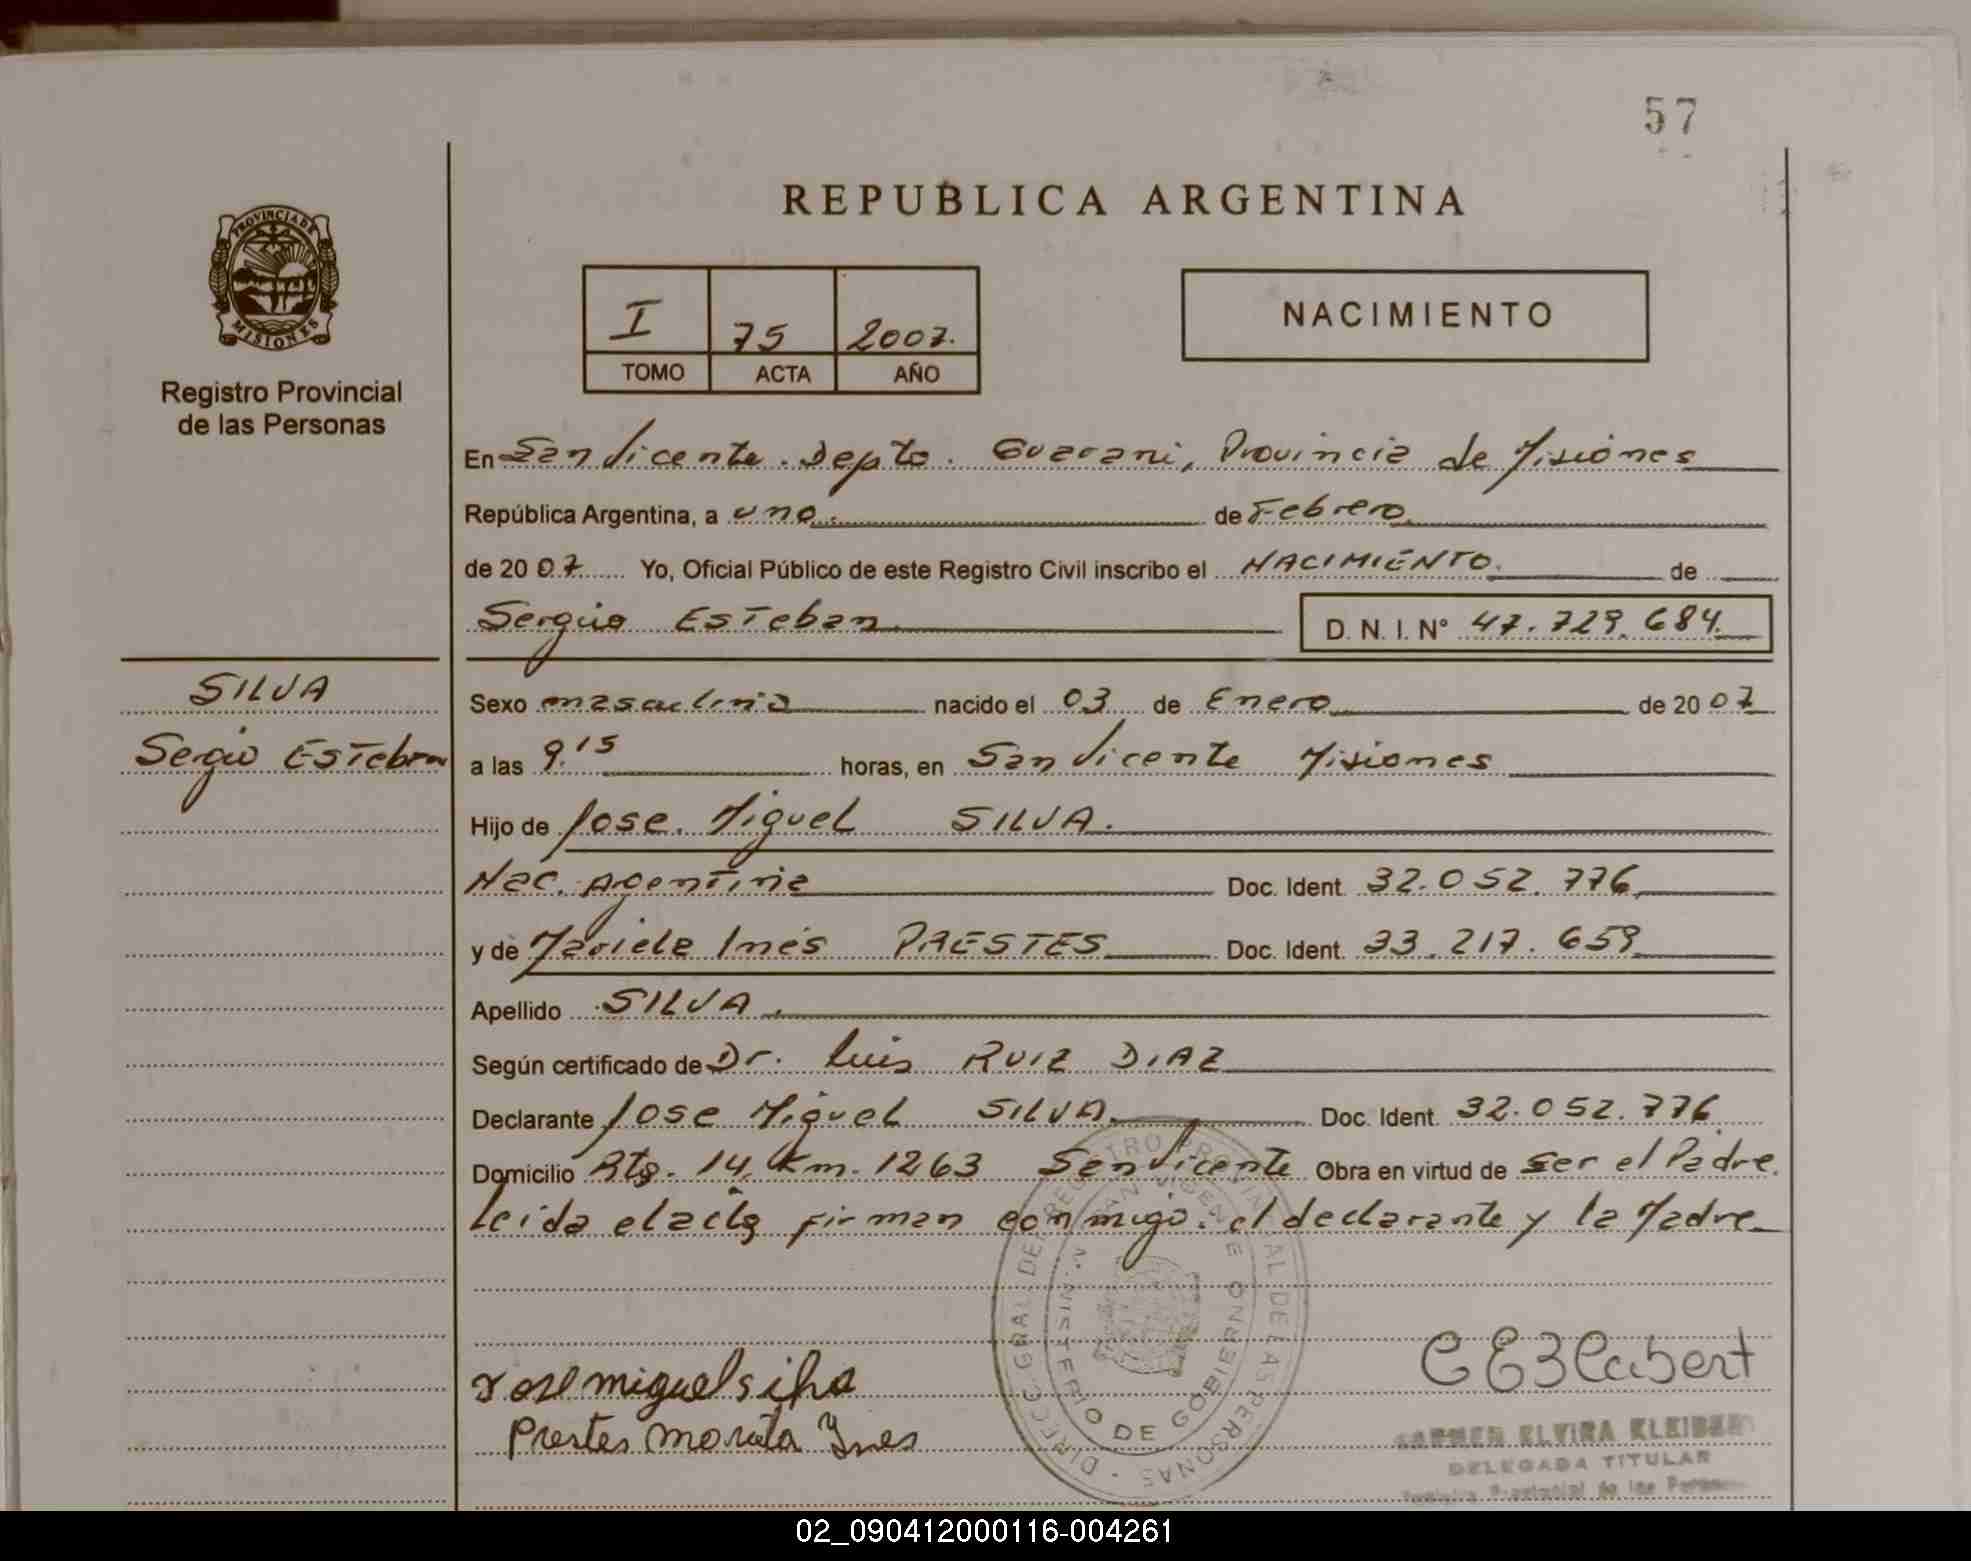 57
REPUBLICA ARGENTINA
PROVINCIA DE
MISIONES
Registro Provincial
de las Personas
I 75 2007.
TOMO ACTA AÑO
NACIMIENTO
En San Vicente. Depto. Guarani, Provincia de Misiones
República Argentina, a uno. de Febrero
de 2007 Yo, Oficial Público de este Registro Civil inscribo el NACIMIENTO. de
Sergio Esteban D. N. I. N° 47.729.684.
SILVA
Sergio Esteban
Sexo masculino nacido el 03 de Enero de 2007
a las 9.15 horas, en San Vicente Misiones
Hijo de Jose Miguel SILVA.
Nac. Argentina Doc. Ident. 32.052.776
y de Inés PRESTES Doc. Ident. 33.217.659
Apellido SILVA.
Según certificado de Dr. Luis RUIZ DIAZ
Declarante Jose Miguel SILVA. Doc. Ident. 32.052.776
Domicilio Rta. 14 Km. 1263 San Vicente Obra en virtud de ser el Padre.
Leida el acta firman conmigo. el declarante y la Madre
DIRECC. GRAL. DEL REGISTRO PROVINCIAL DE LAS PERSONAS
SAN VICENTE
MINISTERIO DE GOBIERNO
Jose miguel silva
Prestes Ines
CARMEN ELVIRA
DELEGADA TITULAR
Registro Provincial de las Personas
02_090412000116-004261